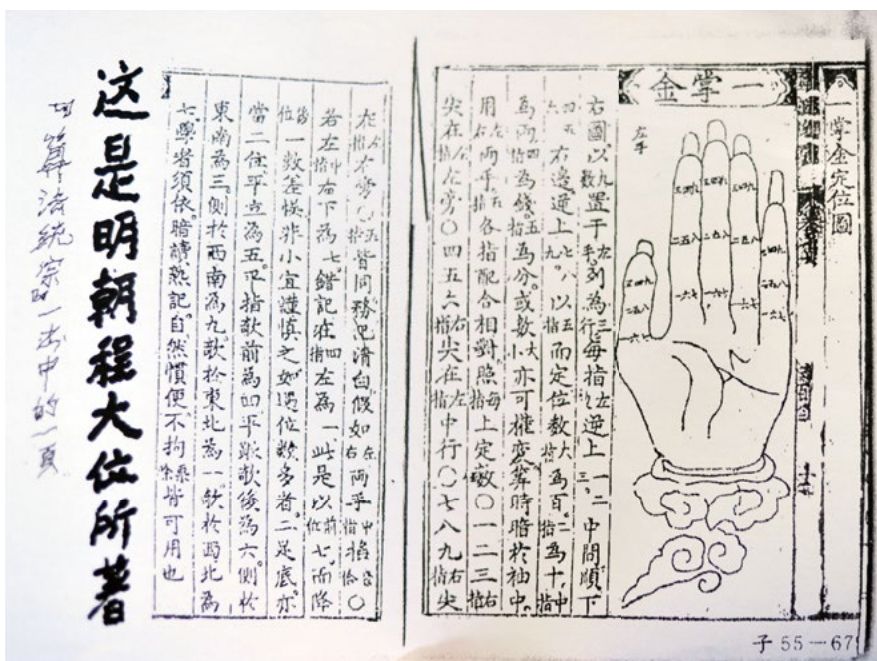 一掌金定位圖
一掌金
左手
右圖以九數置于左手列為三行每指左邊逆上一二三中間順下
四五六右邊逆上七八九以五指而定位數大指為百二指為十中指
為兩四指為錢五指為分或數大小亦可權變筭時暗於袖中
用左右兩手五指各指配合相對照每指上定數〇一二三右指
尖在左指左旁〇四五六右指尖在左指中行〇七八九右指尖
在左指右旁〇五指皆同務記清白假如左右兩手中指掐〇
若左中指右下為七錯記在四指左為一此是以前位七而降
後位一數差悞非小宜謹慎之如遇位數多者二足底亦
當二位平立為五平指欹前為四平跟欹後為六側於
東南為三側於西南為九欹於東北為一欹於西北為
七學者須依暗讀熟記自然慣便不拘乘除皆可用也
这是明朝程大位所著
算法統宗一书中的一頁
子55－67